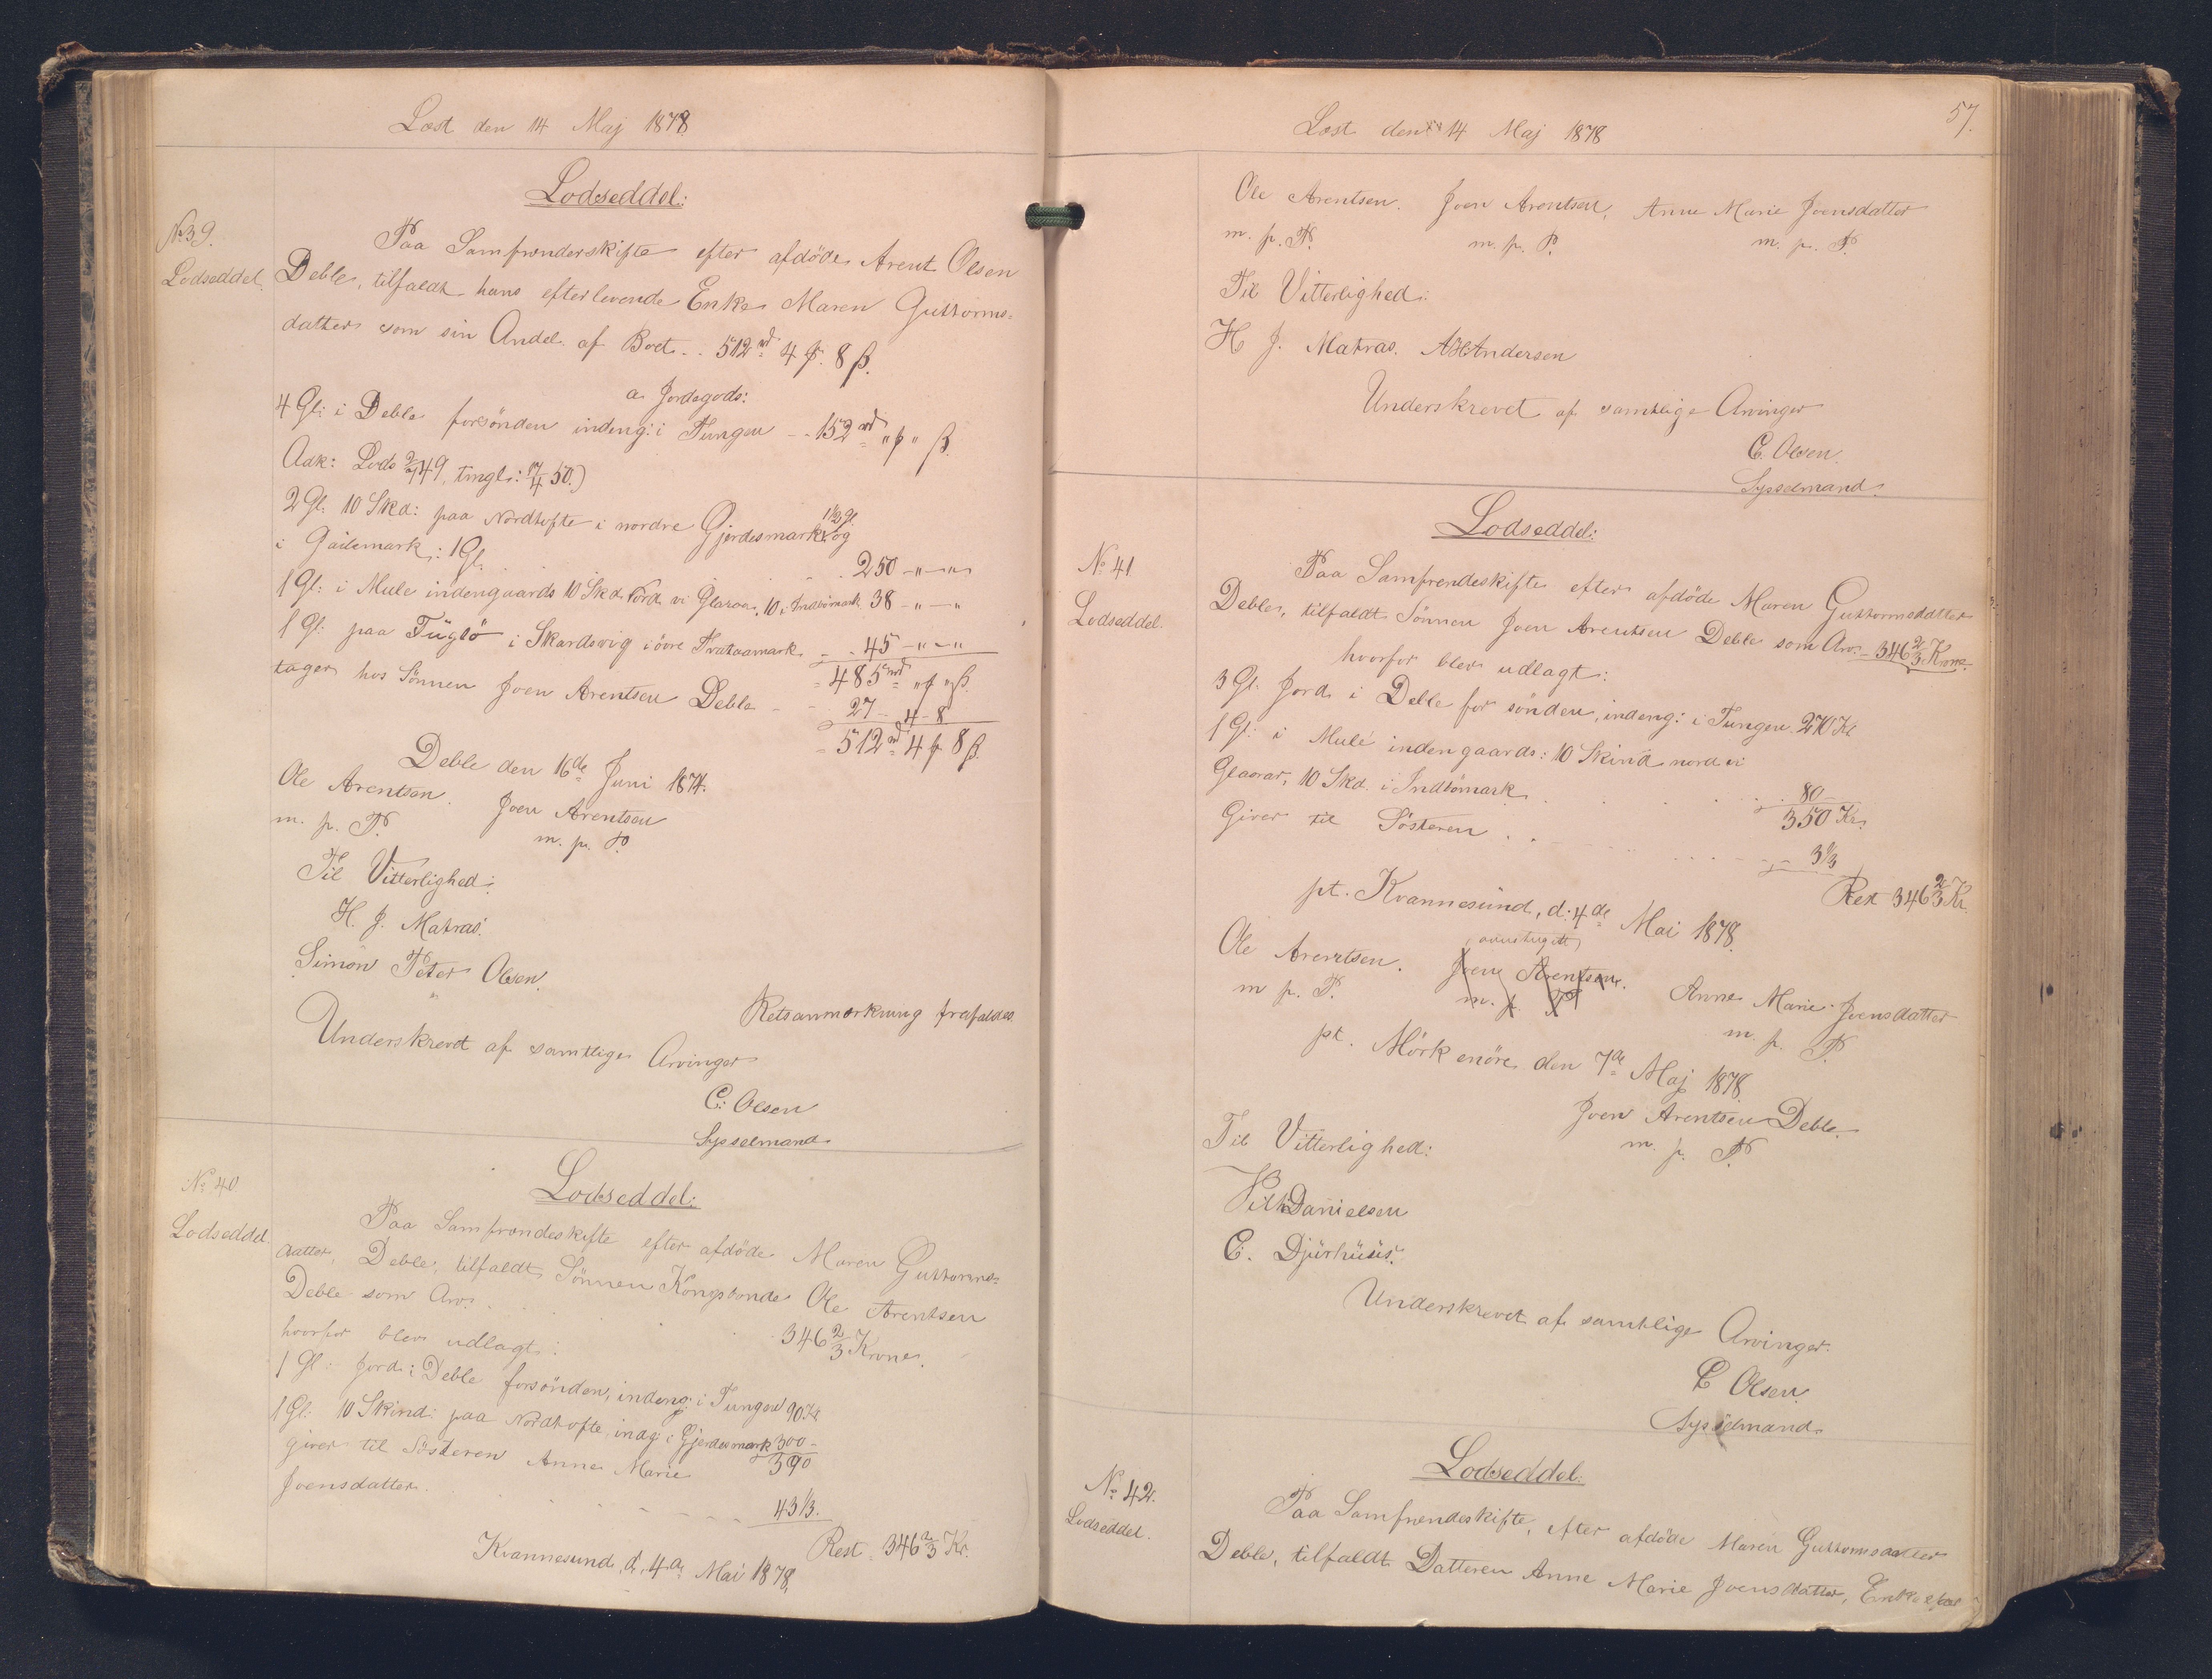 Læst den 14 Maj 1878
Lodseddel:
No 39.
Lodseddel.
Paa Samfrænderskifte efter afdöde Arent Olsen
Deble, tilfaldt hans efterlevende Enke Maren Guttorms=
datter som sin Andel af Boet .. 512 rd 4 ₻ 8 ß.
a Jordegods:
4 Gl: i Deble forsönden indeng: i Tungen - - 152 rd " ₻ " ß.
Adk: Lods 2/7 49, tingl: 17/4 50.)
2 Gl. 10 Skd: paa Nordtofte i nordre Gjerdesmark 1 1/2 Gl. og
i Gailemark: 1 Gl. . . . 250 - " - "
1 Gl: i Mule indengaards 10 Skd. Nord vi Glaraa, 10 i Indtömark 38 - " - "
1 Gl: paa Füglö i Skardsvig i övre Trataamark - . 45 - " - "
= 485 rd " ₻ " ß.
tager hos Sönnen Joen Arentsen Deble - - 27 - 4 - 8
= 512 rd 4 ₻ 8 ß.
Deble den 16de Juni 1874.
Ole Arentsen. Joen Arentsen
m. p. P. m. p. P.
Til Vitterlighed:
H. J. Matras.
Simon Peter Olsen.
Retsanmærkning frafaldes.
Underskrevet af samtlige Arvinger
C: Olsen
Sysselmand.
No 40
Lodseddel.
Lodseddel:
Paa Samfrændeskifte efter afdöde Maren Guttorms=
datter, Deble, tilfaldt Sönnen Kongsbonde Ole Arentsen
Deble som Arv . . . 346 2/3 Krone.
hvorfor blev udlagt:
1 Gl: Jord i Deble forsönden, indeng: i Tungen 90 Kr
1 Gl: 10 Skind: paa Nordtofte, indg: i Gjerdesmark 300 -
390
giver til Sösteren Anne Marie
Joensdatter. . . . 43 1/3.
Rest 346 2/3 Kr.
Kvannesund, d. 4de Mai 1878,
57.
Læst den 14 Maj 1878
Ole Arentsen. Joen Arentsen, Anne Marie Joensdatter
m. p. P. m. p. P. m. p. P.
Til Vitterlighed:
H J. Matras. Andersen
Underskrevet af samtlige Arvinger
C. Olsen.
Sysselmand.
No 41
Lodseddel.
Lodseddel:
Paa Samfrendeskifte efter afdöde Maren Guttormsdatter
Deble, tilfaldt Sönnen Joen Arentsen Deble som Arv. - 346 2/3 Krone.
hvorfor blev udlagt:
3 Gl. Jord i Deble for sönden, indeng: i Tungen. 270 Kr
1 Gl: i Mule indengaards: 10 Skind nord vi
Glaarar, 10 Skd. i Indtömark . . . 80 -
350 Kr.
Giver til Sösteren . . . 3 1/3
Rest 346 2/3 Kr.
pt. Kvannesund, d: 4de Mai 1878.
Ole Arentsen. Joen Arentsen. Anne Marie Joensdatter
m p. P. m. p. P. m. p. P.
pt. Mörkenöre den 7de Maj 1878.
Joen Arentsen Deble.
m. p. P.
Til Vitterlighed:
Danielsen
C. Djürhüüs.
Underskrevet af samtlige Arvinger.
C Olsen.
Sysselmand.
No 42.
Lodseddel.
Lodseddel.
Paa Samfrendeskifte, efter afdöde Maren Guttormsdatter
Deble, tilfaldt Datteren Anne Marie Joensdatter, Enke efter